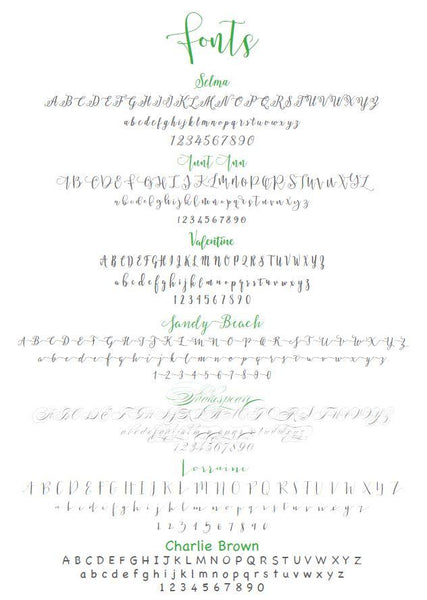 Fonts
Selma
ABCDEFGHIJKLMNOPQRSTUVWXYZ
abcdefghijklmnopqrstuvwxyz
1234567890
Aunt Ann
ABCDEFGHIJKLMNOPQRSTUVWXYZ
abcdefghijklmnopqrstuvwxyz
1234567890
Valentine
ABCDEFGHIJKLMNOPQRSTUVWXYZ
abcdefghijklmnopqrstuvwxyz
1234567890
Sandy Beach
ABCDEFGHIJKLMNOPQRSTUVWXYZ
abcdefghijklmnopqrstuvwxyz
1234567890
Shakespeare
ABCDEFGHIJKLMNOPQRSTUVWXYZ
abcdefghijklmnopqrstuvwxyz
1234567890
Lorraine
ABCDEFGHIJKLMNOPQRSTUVWXYZ
abcdefghijklmnopqrstuvwxyz
1234567890
Charlie Brown
ABCDEFGHIJKLMNOPQRSTUVWXYZ
abcdefghijklmnopqrstuvwxyz
1234567890